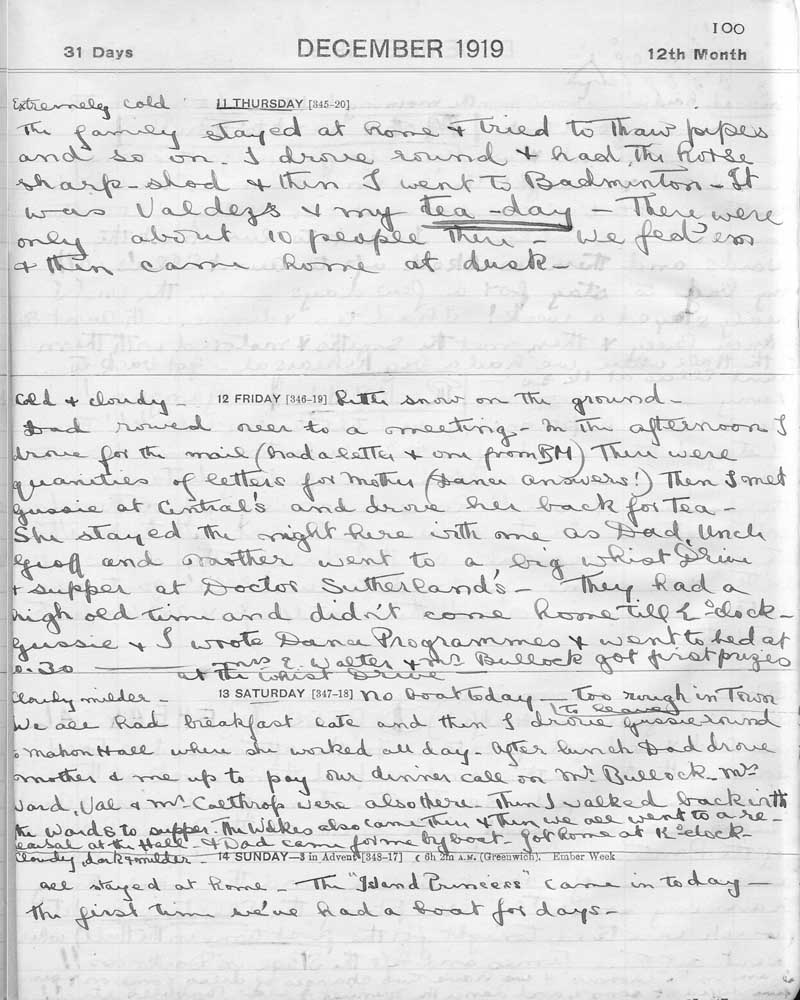 100
31 Days DECEMBER 1919 12th Month
Extremely cold 11 THURSDAY [345-20]
The family stayed at home & tried to thaw pipes
and so on. I drove round & had the horse
sharp-shod & then I went to Badminton - It
was Valdez's & my tea-day - There were
only about 10 people there - We fed 'em
& then came home at dusk -
Cold & cloudy - 12 FRIDAY [346-19] Little snow on the ground -
Dad rowed over to a meeting - In the afternoon I
drove for the mail (had a letter & one from BM) There were
quanities of letters for Mother (Dance answers!) Then I met
Gussie at Central's and drove her back for tea -
She stayed the night here with me as Dad, Uncle
Geoff and Mother went to a big Whist Drive
& supper at Doctor Sutherland's - They had a
high old time and didn't come home till 2 o'clock -
Gussie & I wrote Dance Programmes & went to bed at
0.30 Mrs E. Walter & Mr Bullock got first prizes
at the Whist Drive
Cloudy milder - 13 SATURDAY [347-18] No boat today - too rough in Town
to leave
We all had breakfast late and then I drove Gussie round
Mahon Hall where she worked all day. After lunch Dad drove
Mother & me up to pay our dinner call on Mr. Bullock - Mrs
Ward, Val & Mr. Calthrop were also there. Then I walked back with
the Wards to supper. The Wilkes also came there & then we all went to a re-
earsal at the Hall - & Dad came for me by boat - Got home at o'clock -
Cloudy, dark & milder - 14 SUNDAY—3 in Advent [348-17] ☾ 6h 2m A.M. (Greenwich). Ember Week
all stayed at home - The "Island Princess" came in today -
the first time we've had a boat for days -